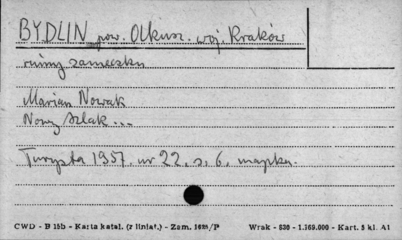 BYDLIN pow. Olkusz. woj. Kraków
ruiny zameczku
Marian Nowak
Nowy Szlak...
Turysta 1957. nr 22. s. 6. mapka.
CWD - B 15b - Karta katal. (z liniat.) - Zam. 1628/P Wrak - 630 - 1.169.000 - Kart. 5 kl. A1